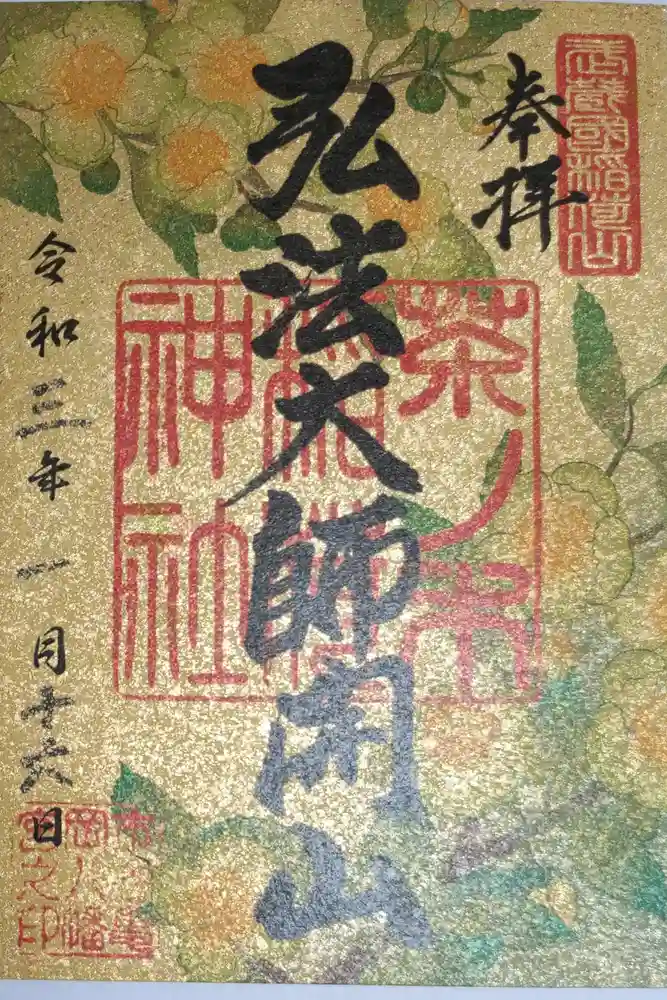 武蔵國稲荷山
奉拝
茶ノ木
稲荷
神社
弘法大師開山
令和三年一月十六日
市谷亀
岡八幡
宮之印